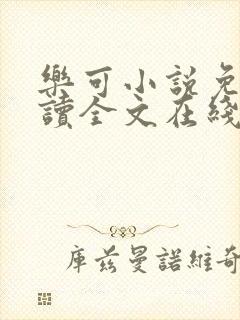 樂可小說免
讀全文在綫
庫茲曼諾維奇